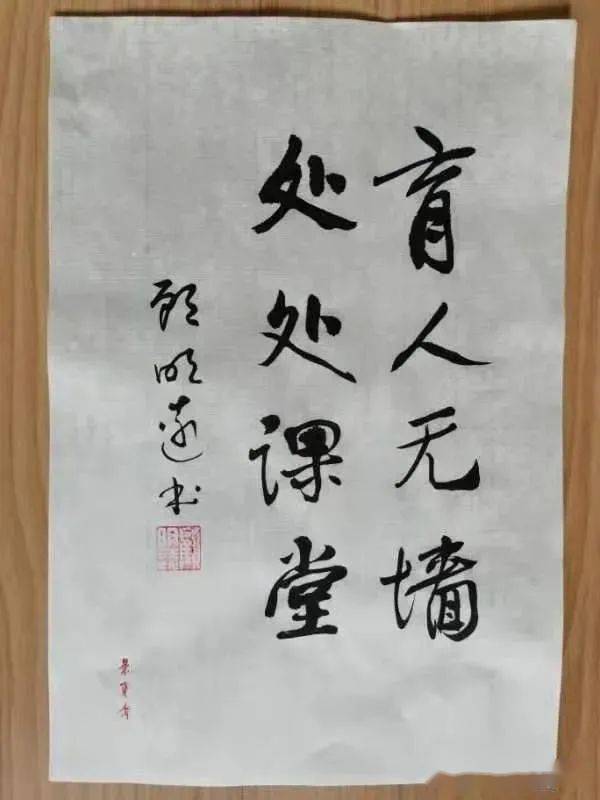 育人无墙
处处课堂
顾明远书